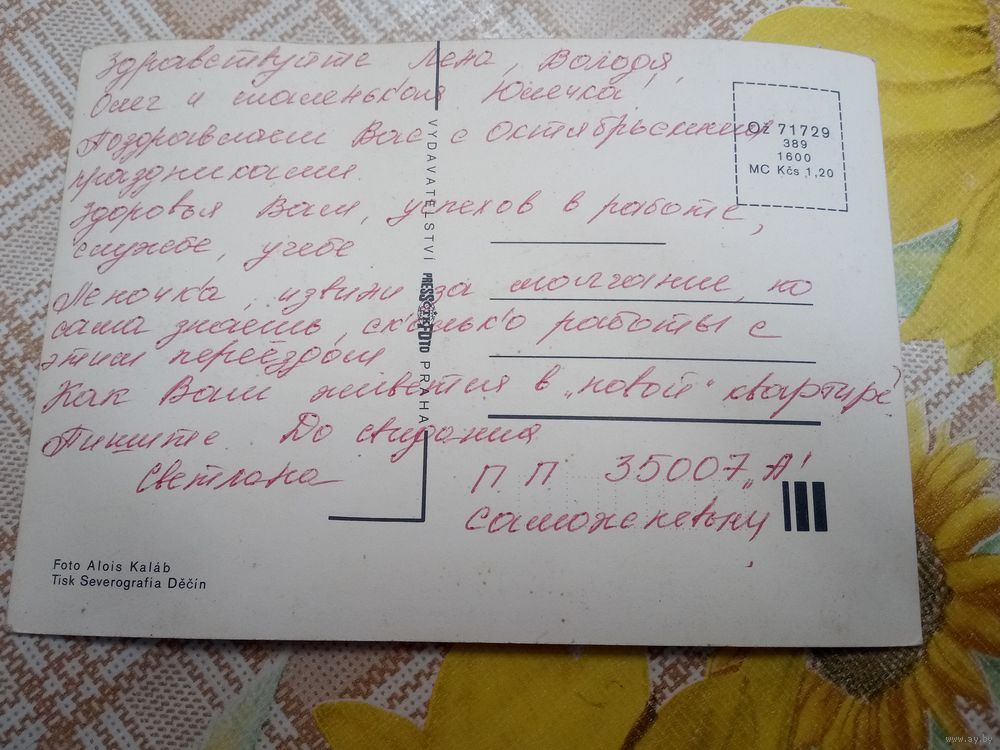 Здравствуйте Лена, Володя,
Олег и маленькая Юлечка!
Поздравляем Вас с Октябрьскими
праздниками.
Здоровья Вам, успехов в работе,
службе, учебе
Леночка, извини за молчание, но
сама знаешь, сколько работы с
этим переездом
Как Вам живется в „новой" квартире?
Пишите. До свидания
Светлана
П П 35007 „А"
VYDAVATELSTVÍ PRESSFOTO PRAHA
OZ 71729
389
1600
MC Kčs 1,20
Foto Alois Kaláb
Tisk Severografia Děčín
www.ay.by